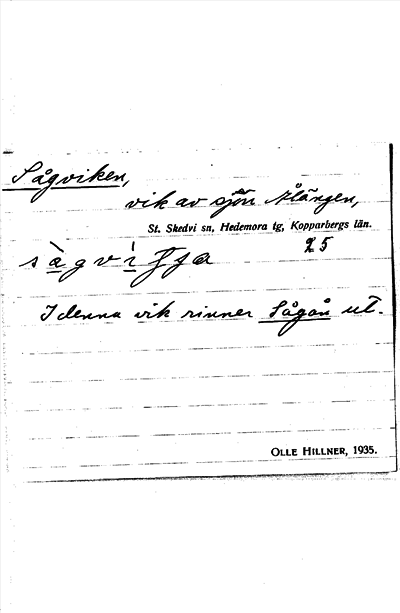 Sågviken,
vik av sjön Ålängen,
St. Skedvi sn, Hedemora tg, Kopparbergs län.
25
I denna vik rinner Sågån ut.
OLLE HILLNER, 1935.